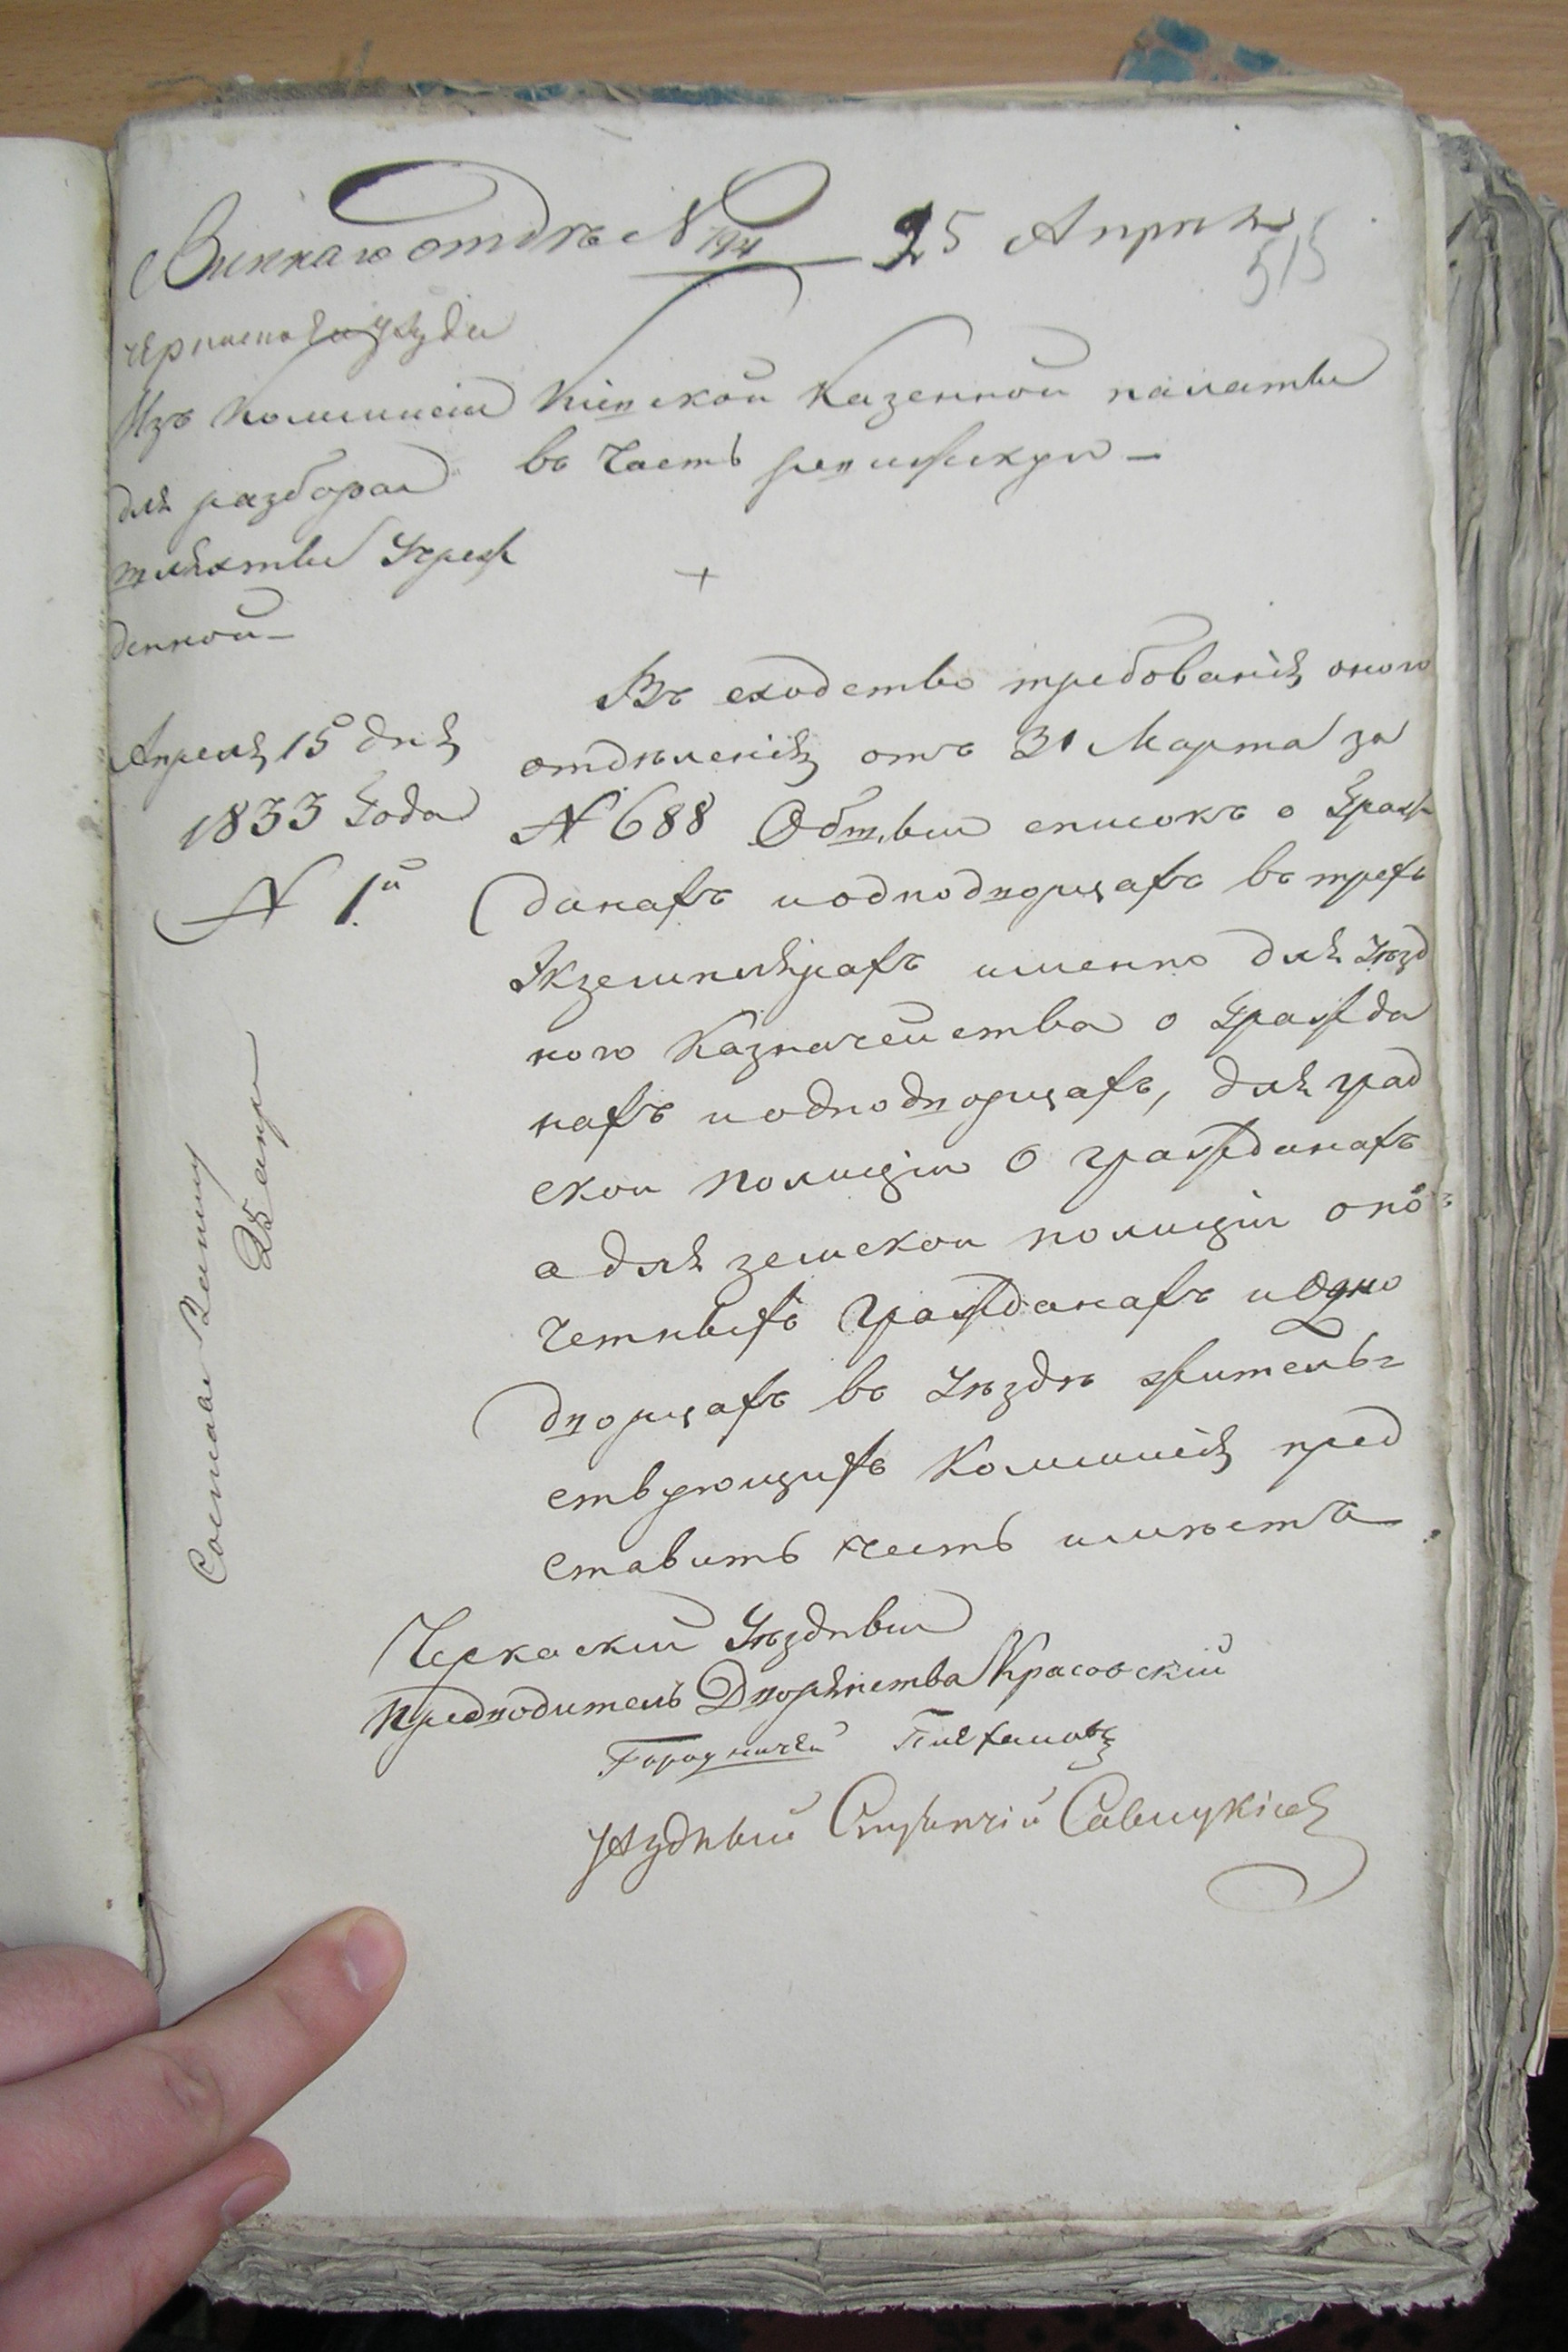 Виннаго отдѣ № 194 25 Апрѣля
515
Изъ Коммисіи
для разбора
шляхты Учреж
денной —
Апреля 15 дня
1833 Года
№ 1й
25 апр
Кіевской Казенной палаты
въ Часть ревижскую —
Въ сходство требованія оного
отдѣленія отъ 31 Марта за
№ 688 Общый списокъ о Граж
данахъ и однодворцахъ въ трехъ
Экземплярахъ именно для Уѣзд
ного Казначейства о Гражда
нахъ и однодворцахъ, для град
ской полиціи о гражданахъ
а для земской полиціи о по=
четныхъ гражданахъ и одно
дворцахъ въ Уѣздѣ житель=
ствующихъ Коммисія пред
ставить честь имѣетъ
Черкаский Уѣздный
предводитель Дворянства Красовский
Городничей
Уѣздный Стряпчій